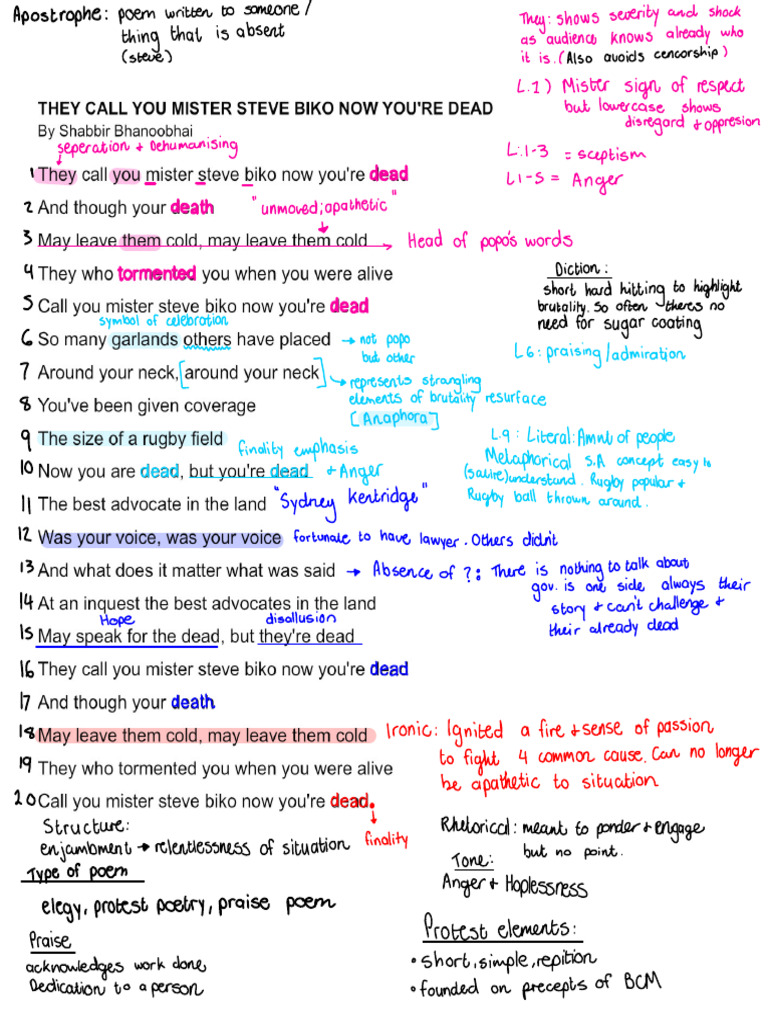 Apostrophe: poem written to someone/
thing that is absent
(steve)
They: shows severity and shock
as audience knows already who
it is. (Also avoids cencorship)
L.1) Mister sign of respect
but lowercase shows
disregard + oppresion
L:1-3 = sceptism
L1-5 = Anger
THEY CALL YOU MISTER STEVE BIKO NOW YOU'RE DEAD
By Shabbir Bhanoobhai
seperation + Dehumanising
1 They call you mister steve biko now you're dead
2 And though your death "unmoved; apathetic"
3 May leave them cold, may leave them cold → Head of popo's words
4 They who tormented you when you were alive
Diction:
short hard hitting to highlight
brutality. So often theres no
need for sugar coating
5 Call you mister steve biko now you're dead
symbol of celebration
6 So many garlands others have placed → not popo
but other
L6: praising/admiration
7 Around your neck, [around your neck] → represents strangling
elements of brutality resurface
[Anaphora]
8 You've been given coverage
9 The size of a rugby field
L.9: Literal: Amnt of people
Metaphorical S.A concept easy to
(satire) understand. Rugby popular +
Rugby ball thrown around.
finality emphasis
10 Now you are dead, but you're dead + Anger
11 The best advocate in the land "Sydney Kentridge"
12 Was your voice, was your voice fortunate to have lawyer. Others didn't
13 And what does it matter what was said → Absence of ?: There is nothing to talk about
gov. is one side always their
story + can't challenge +
their already dead
14 At an inquest the best advocates in the land
Hope disollusion
15 May speak for the dead, but they're dead
16 They call you mister steve biko now you're dead
17 And though your death
18 May leave them cold, may leave them cold Ironic: Ignited a fire + sense of passion
to fight 4 common cause. Can no longer
be apathetic to situation
19 They who tormented you when you were alive
20 Call you mister steve biko now you're dead.
finality
Structure:
enjambment → relentlessness of situation
Type of poem
elegy, protest poetry, praise poem
Praise
acknowledges work done
Dedication to a person
Rhetorical: meant to ponder + engage
but no point.
Tone:
Anger + Hoplessness
Protest elements:
• short, simple, repition
• founded on precepts of BCM